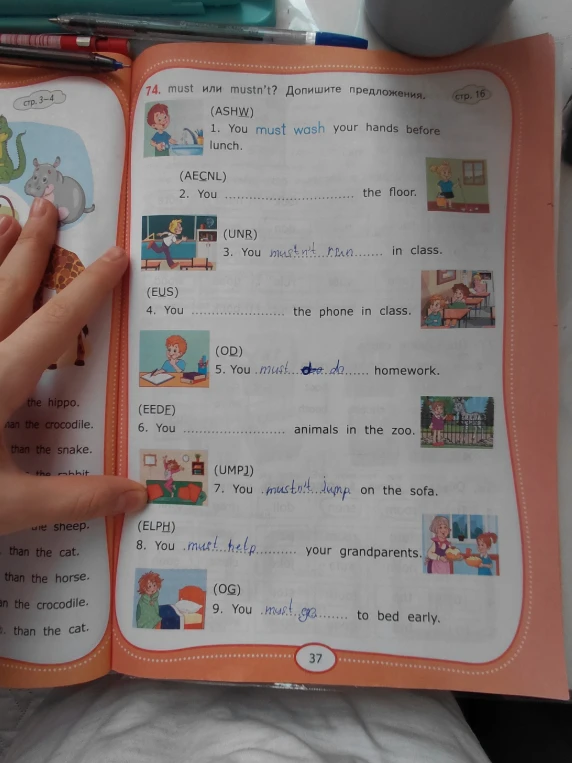 стр. 3–4
the hippo.
an the crocodile.
than the snake.
the rabbit
the sheep.
than the cat.
than the horse.
an the crocodile.
than the cat.
74. must или mustn't? Допишите предложения.
стр. 16
(ASHW)
1. You must wash your hands before
lunch.
(AECNL)
2. You .............................. the floor.
(UNR)
3. You mustn't run in class.
(EUS)
4. You ...................... the phone in class.
(OD)
5. You must do homework.
(EEDE)
6. You ........................ animals in the zoo.
(UMPJ)
7. You mustn't jump on the sofa.
(ELPH)
8. You must help your grandparents.
(OG)
9. You must go to bed early.
37